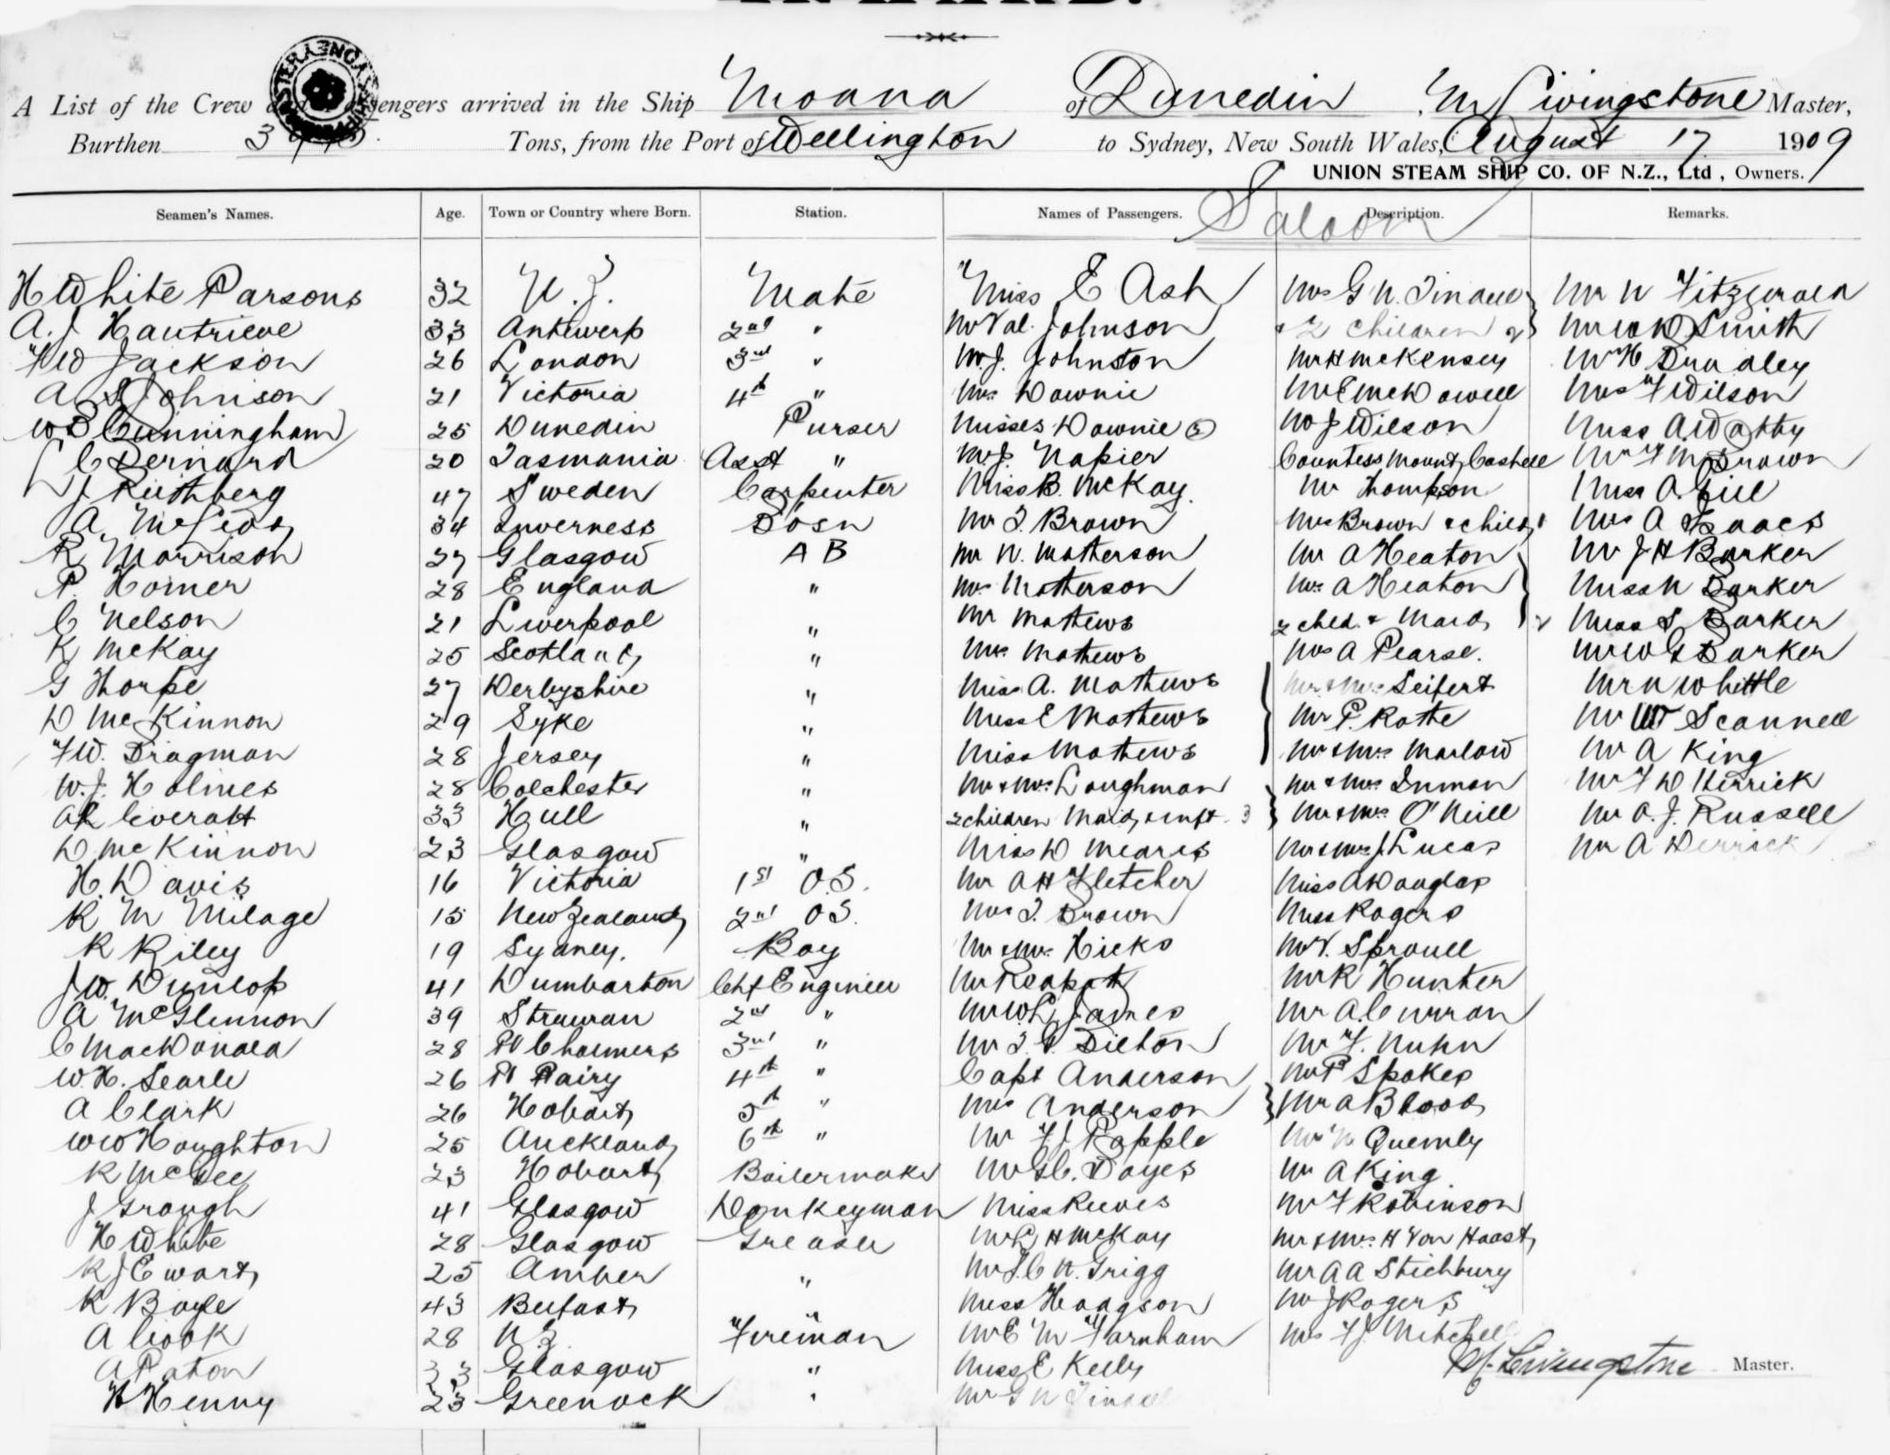 A List of the Crew and Passengers arrived in the Ship Moana of Dunedin, M Livingstone Master,
Burthen Tons, from the Port of Wellington to Sydney, New South Wales, August 17 1909
UNION STEAM SHIP CO. OF N.Z., Ltd, Owners.
Seamen's Names. Age. Town or Country where Born. Station. Names of Passengers. Saloon Description. Remarks.
H White Parsons 32 N.Z. Mate Miss E Ash Mrs G N. Mr N Fitzgerald
A. J Hautrieve 33 Antwerp 2nd " Mr Val. Johnson & 2 children 2 Mr W D Smith
F W Jackson 26 London 3rd " Mr J. Johnson Mr H McKensey Mr H Bradley
A S Johnson 21 Victoria 4th " Mrs Downie Mr E McDowell Mrs F Wilson
W B Cunningham 25 Dunedin Purser Misses Downie (2) Mr J Wilson Miss A
C Bernard 20 Tasmania Asst " Mr J. Napier Countess Mount Cashell Mr F M Brown
J Ruthberg 47 Sweden Carpenter Miss B. McKay. Mr Thompson Miss A. Gill
A McLeod 34 Inverness Bosn Mr T. Brown Mrs Brown & child 1 Mrs A Isaacs
R Morrison 27 Glasgow A B Mr N. Matherson Mr A Heaton Mr J H Barker
P. Homer 28 England " Mrs Matherson Mrs A Heaton Miss N Barker
C Nelson 21 Liverpool " Mr Mathews 2 child & Maid 2 Miss S Barker
K McKay 25 Scotland " Mrs Mathews Mrs A Pearse. Mr W G Barker
G Thorpe 27 Derbyshire " Miss A. Mathews Mr & Mrs Seifert Mr N Whittle
D McKinnon 29 Syke " Miss E Mathews Mr P. Rothe Mr W Scannell
F W. Dragman 28 Jersey " Miss Mathews Mr & Mrs Marlow Mr A King
W. J. Holmes 28 Colchester " Mr & Mrs Loughman Mr & Mrs Inman Mr F D Herrick
A R Everatt 33 Hull " 2 children Maid & inft. 3 Mr & Mrs O'Neill Mr A. J. Russell
D McKinnon 23 Glasgow " Miss D Meares Mr & Mrs J Lucas Mr A Derrick
H. Davis 16 Victoria 1st O.S. Mr A H Fletcher Miss A Douglas
R M Milage 15 New Zealand 2nd O.S. Mrs T. Brown Miss Rogers
R Riley 19 Sydney. Boy Mr & Mrs Hicks Mr V. Sproull
J W. Dunlop 41 Dumbarton Chf Engineer Mr Mr R Hunter
A McGlennon 39 Strawan 2nd " Mr W L James Mr A. Curran
C MacDonald 28 Pt Chalmers 3rd " Mr T. V. Dillon Mr F. Nunn
W. H. Searle 26 Pt Pairy 4th " Capt Anderson Mr P Spokes
A Clark 26 Hobart 5th " Mrs Anderson Mr A Blood
W W Houghton 25 Auckland 6th " Mr F J Rapple Mr N Quemby
R McGee 23 Hobart Boilermaker Mr G C. Boyes Mr A King
J Grough 41 Glasgow Donkeyman Miss Reeves Mr F Robinson
H White 28 Glasgow Greaser Mr L H McKay Mr & Mrs H Von Haast
R J Ewart 25 Amber " Mr J. C N. Grigg Mr A A Stichbury
K Boyle 43 Belfast " Miss Hodgson Mr J Rogers
A Cook 28 N Z Fireman Mr E M Farnham Mrs F J Mitchell
A Paton 33 Glasgow " Miss E Kelly M. Livingstone Master.
H Henny 23 Greenock " Mr G N